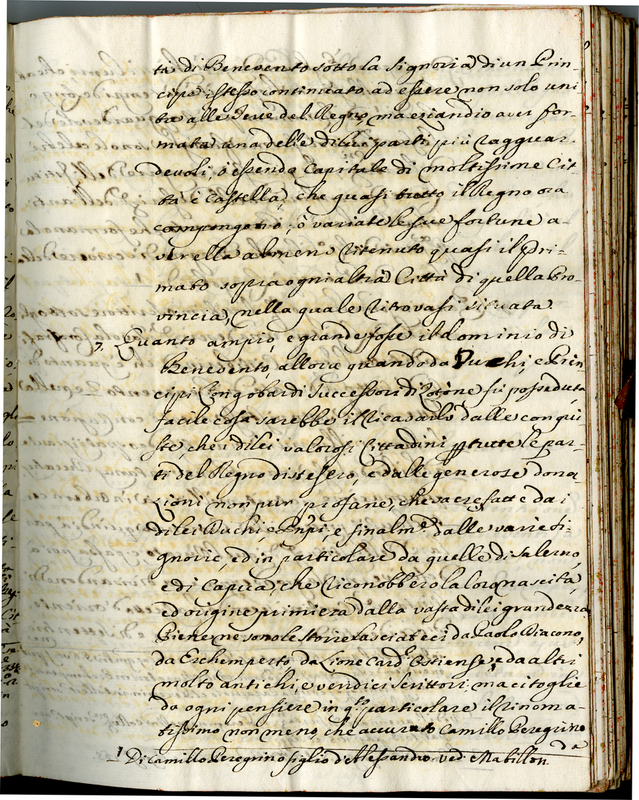 tà di Benevento sotto la signoria di un Prin-
cipe istesso continuato ad essere non solo uni
ta alle terre del Regno, ma eziandio aver for-
mata una delle di lui parti più ragguar-
devoli, o essendo Capitale di moltissime Cit
tà e Castella, che quasi tutto il Regno ora
compongono, o variate le sue fortune a-
ver ella almen ritenuto quasi il Pri-
mato sopra ogni altra Città di quella Pro-
vincia, nella quale ritrovasi situata.
7. Quanto ampio, e grande fosse il dominio di
Benevento allora quando da Duchi, e Prin
cipi Longobardi Successori di Zotone fù posseduta,
facile cosa sarebbe il ricavarlo dalle conqui
ste, che i di lei valorosi Cittadini per tutte le par-
ti del Regno distesero, e dalle generose dona
zioni non pur profane, che sacre fatte da i
di lei Duchi, e Pnpi, e finalm.e dalle varie Si-
gnorie, ed in particolare da quelle di Salerno,
e di Capua, che riconobbero la loro nascita,
ed origine primiera dalla vasta di lei grandezza
Piene ne sono le Storie lasciateci da Paolo Diacono,
da Erchemperto, da Lione Card.e Ostiense, e da altri
molto antichi, e veridici scrittori; ma ci toglie
da ogni pensiere in q.to particolare il rinoma-
tissimo non meno, che accurato Camillo Peregrino
da
1 Di Camillo Peregrino figlio d'Alessandro ved. Mabillon